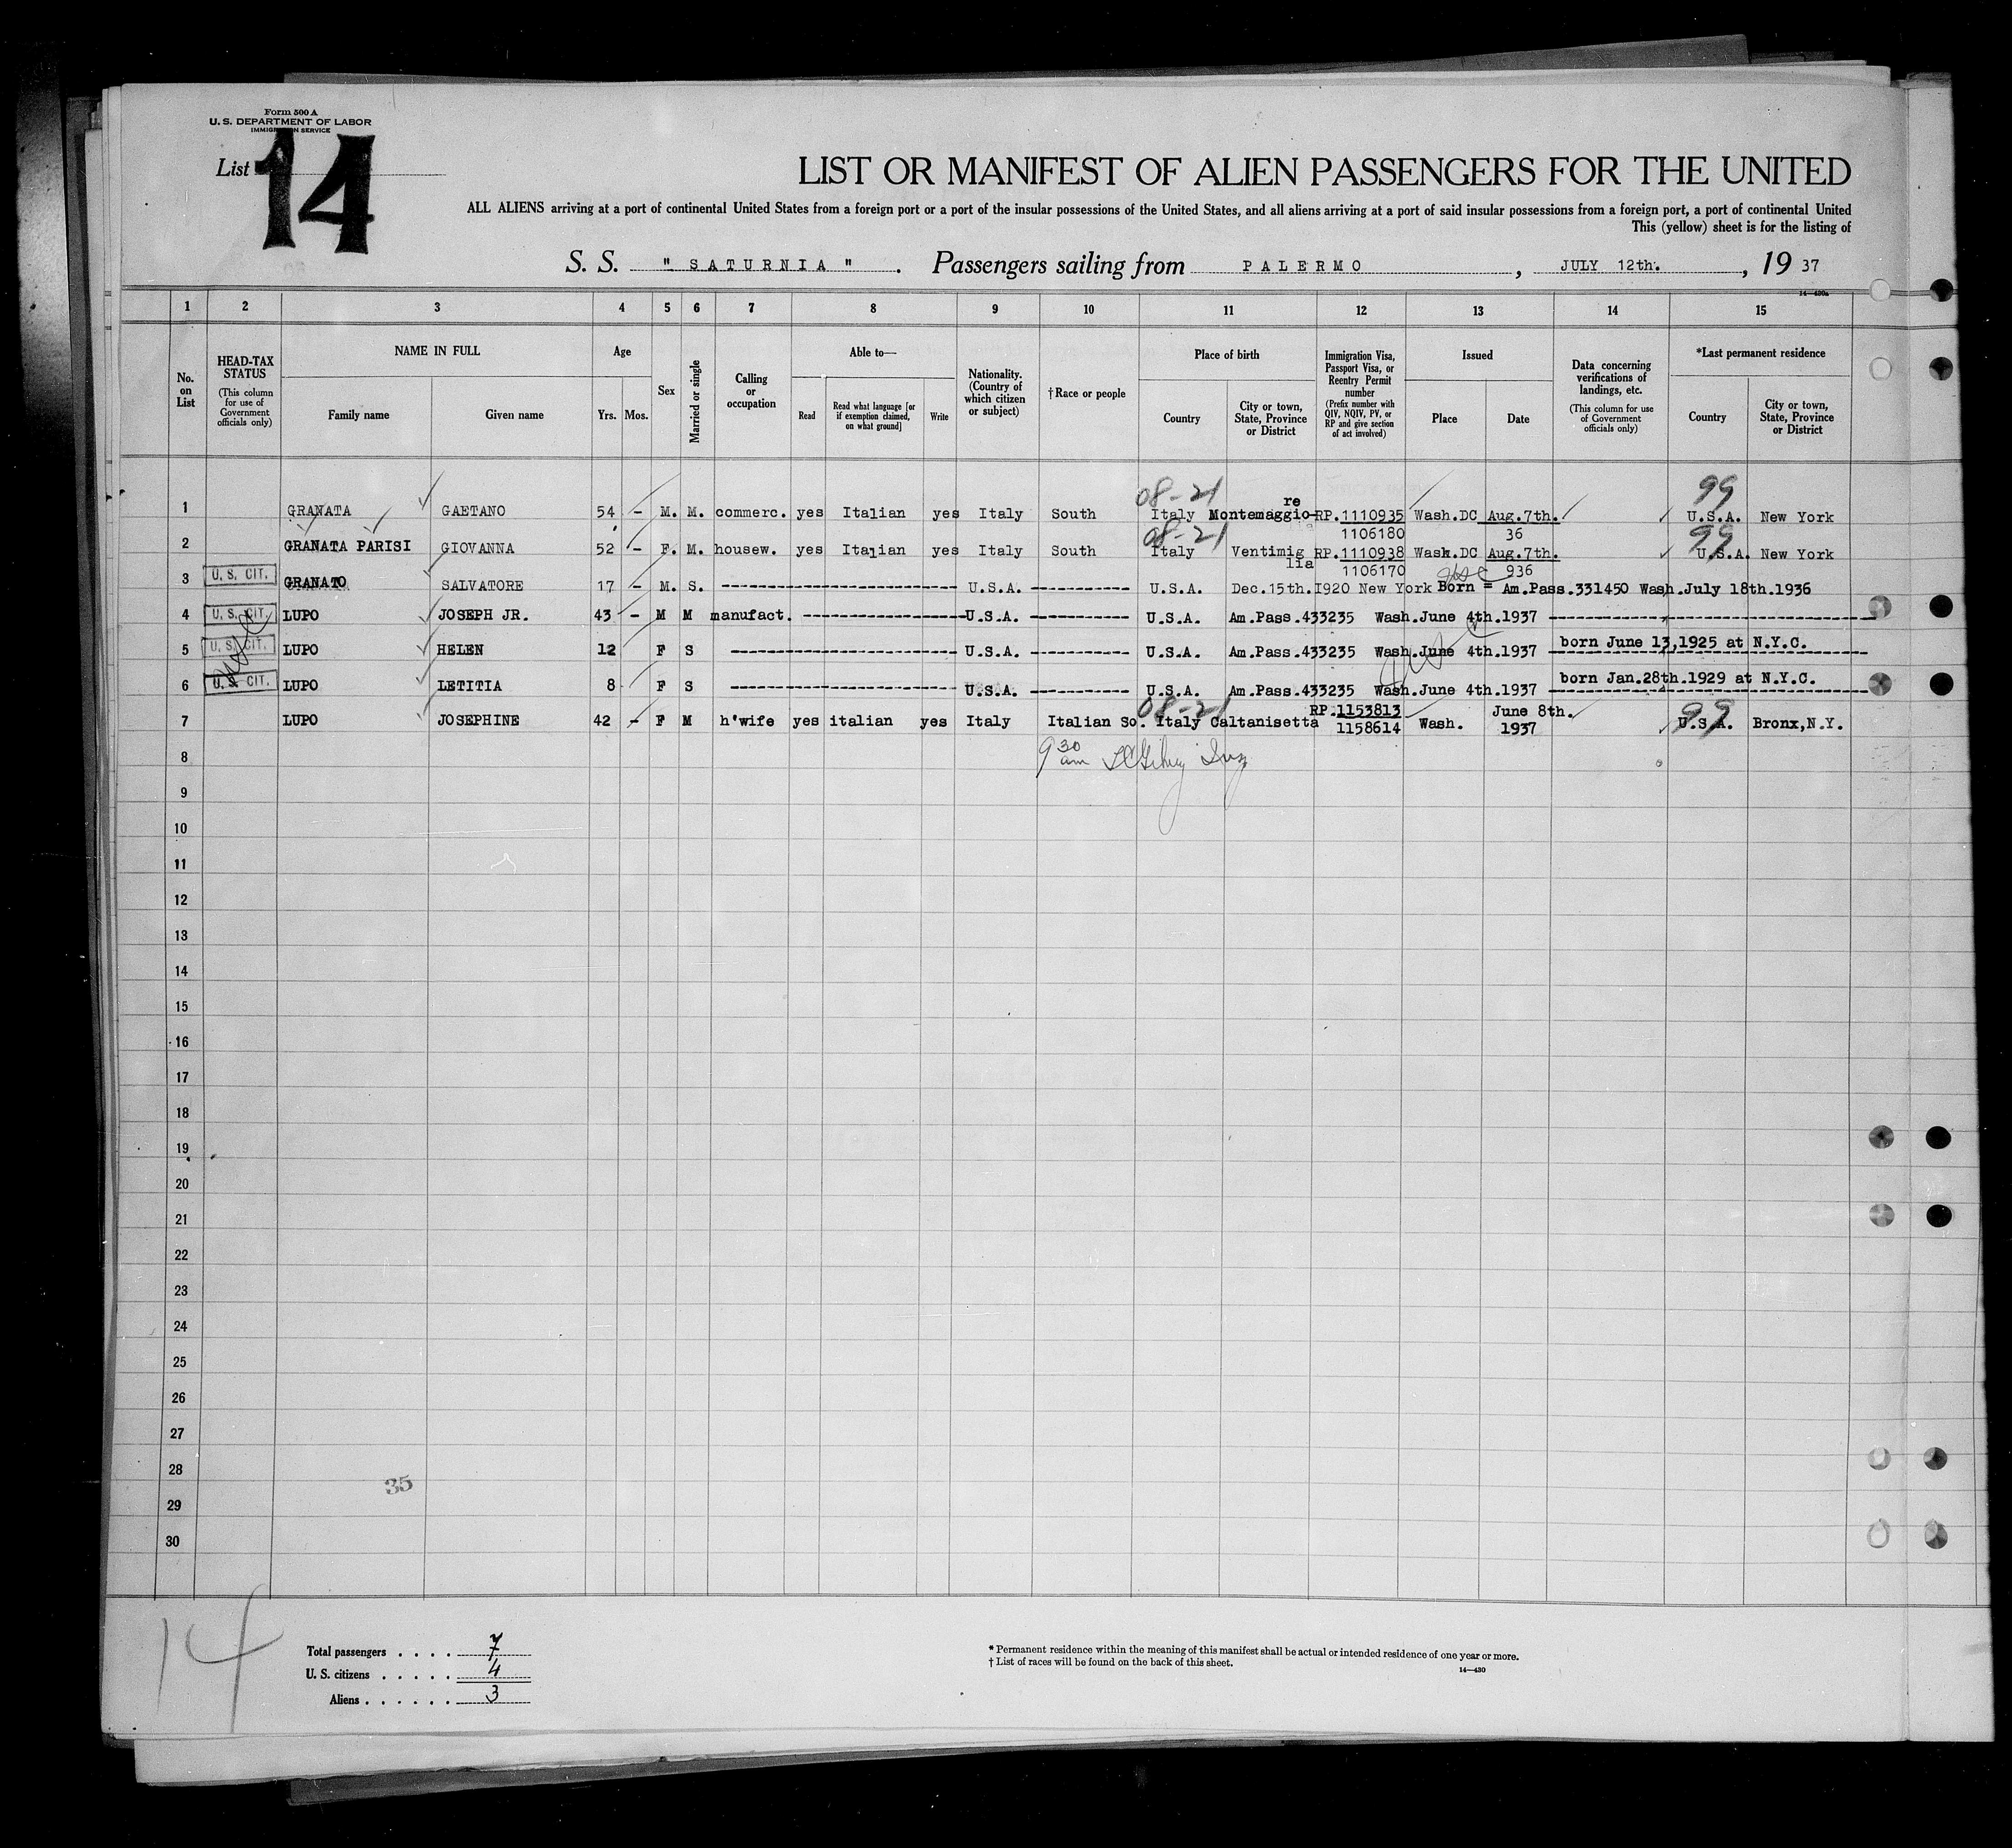 Form 500 A
U. S. DEPARTMENT OF LABOR
IMMIGRATION SERVICE
List 14
LIST OR MANIFEST OF ALIEN PASSENGERS FOR THE UNITED
ALL ALIENS arriving at a port of continental United States from a foreign port or a port of the insular possessions of the United States, and all aliens arriving at a port of said insular possessions from a foreign port, a port of continental United
This (yellow) sheet is for the listing of
S. S. " SATURNIA " . Passengers sailing from PALERMO , JULY 12th. , 19 37
1 2 3 4 5 6 7 8 9 10 11 12 13 14 15
No. on List
HEAD-TAX STATUS
(This column for use of Government officials only)
NAME IN FULL
Family name Given name
Age
Yrs. Mos.
Sex
Married or single
Calling or occupation
Able to—
Read
Read what language [or if exemption claimed, on what ground]
Write
Nationality. (Country of which citizen or subject)
† Race or people
Place of birth
Country
City or town, State, Province or District
Immigration Visa, Passport Visa, or Reentry Permit number
(Prefix number with QIV, NQIV, PV, or RP and give section of act involved)
Issued
Place Date
Data concerning verifications of landings, etc.
(This column for use of Government officials only)
*Last permanent residence
Country
City or town, State, Province or District
08-21 re 99
1 GRANATA GAETANO 54 - M. M. commerc. yes Italian yes Italy South Italy Montemaggio- RP.1110935 Wash.DC Aug.7th. U.S.A. New York
1106180 36
08-21 99
2 GRANATA PARISI GIOVANNA 52 - F. M. housew. yes Italian yes Italy South Italy Ventimig RP.1110938 Wash.DC Aug.7th. U.S.A. New York
lia 1106170 936
3 U. S. CIT. GRANATO SALVATORE 17 - M. S. ---------- U.S.A. ---------- U.S.A. Dec.15th.1920 New York Born = Am.Pass.331450 Wash.July 18th.1936
4 U. S. CIT. LUPO JOSEPH JR. 43 - M M manufact. ---------- U.S.A. ---------- U.S.A. Am.Pass.433235 Wash.June 4th.1937 ----------
5 U. S. CIT. LUPO HELEN 12 F S ---------- U.S.A. ---------- U.S.A. Am.Pass.433235 Wash.June 4th.1937 born June 13,1925 at N.Y.C.
6 U. S. CIT. LUPO LETITIA 8 F S ---------- U.S.A. ---------- U.S.A. Am.Pass.433235 Wash.June 4th.1937 born Jan.28th.1929 at N.Y.C.
08-21 RP.1153813 June 8th. 99
7 LUPO JOSEPHINE 42 - F M h'wife yes italian yes Italy Italian So. Italy Caltanisetta 1158614 Wash. 1937 U.S.A. Bronx,N.Y.
8 9 30 am
9
10
11
12
13
14
15
16
17
18
19
20
21
22
23
24
25
26
27
28
35
29
30
14
Total passengers . . . . 7
U. S. citizens . . . . . 4
Aliens . . . . . . 3
* Permanent residence within the meaning of this manifest shall be actual or intended residence of one year or more.
† List of races will be found on the back of this sheet.
14—430